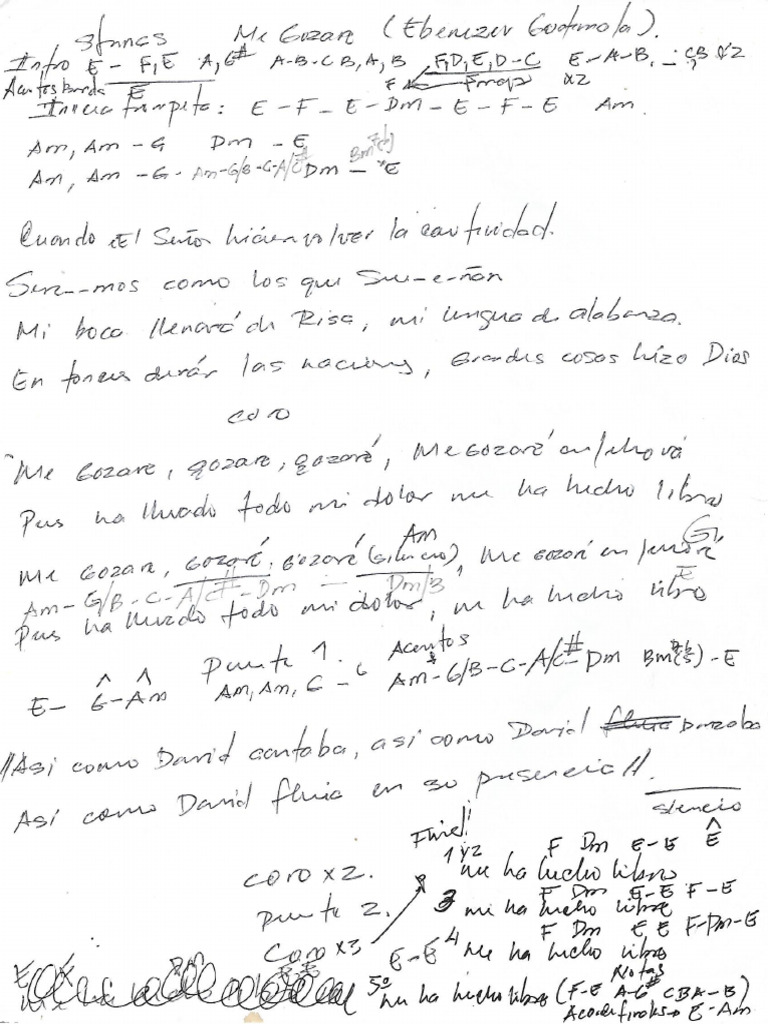 Me Gozare (Ebenezer Guatemala).
Intro E - F, E A, G# A-B-C B, A, B F, D, E, D-C E-A-B, - CB x2
Acentos banda E F x2
Inicia trompeta: E - F - E - Dm - E - F - E Am.
Am, Am - G Dm - E
Am, Am - G - Am-G/B-C-A/C# Dm - E
Cuando El Señor hiciere volver la cautividad.
Sere--mos como los que Sue-e-ñan
Mi boca llenará de Risa, mi lengua de alabanza.
Entonces dirán las naciones, Grandes cosas hizo Dios
coro
Me Gozare, gozare, gozaré, Me Gozaré en Jehová
Pues ha llevado todo mi dolor me ha hecho libre
Am G
Me Gozare, Gozaré, Gozaré (silencio), Me Gozaré en Jehová
Am - G/B - C - A/C# - Dm - Dm/B E
Pues ha llevado todo mi dolor, me ha hecho libre
Puente 1. Acentos
E - G - Am Am, Am, C - G Am - G/B - C - A/C# - Dm Bm(7b5) - E
//Asi como David cantaba, asi como David danzaba
Así como David fluia en su presencia//.
silencio
Final
F Dm E-E E
coro x2. 1 y 2 me ha hecho libre
F Dm E-E F-E
Puente 2. 3 me ha hecho libre
F Dm E E F-Dm-E
Coro x3 E-E 4 me ha hecho libre
Notas
5º me ha hecho libre (F-E A-G# CBA-B)
Acordes finales E-Am